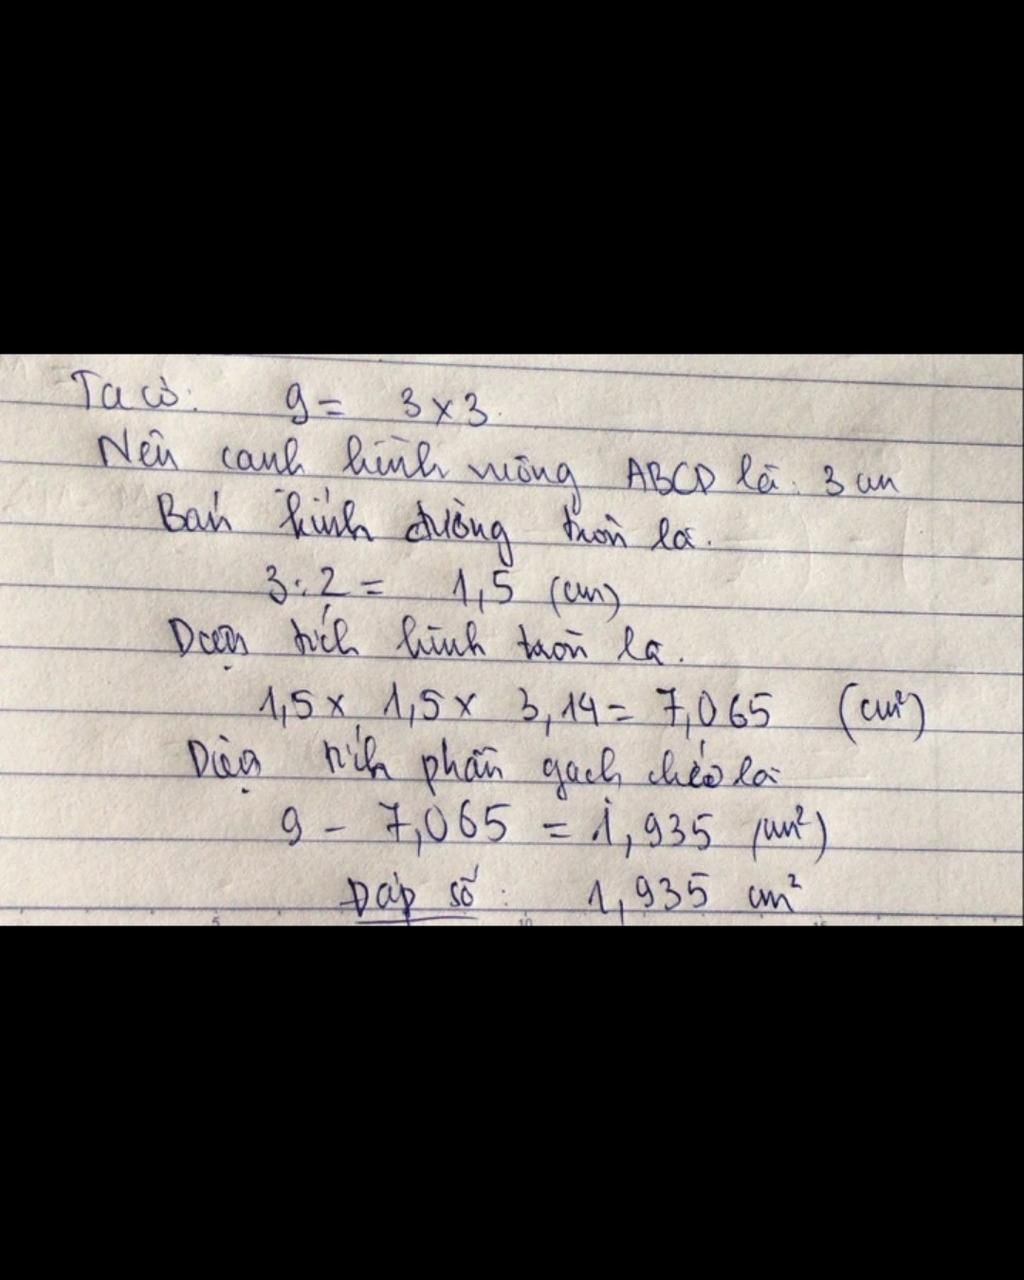 Ta có: 9 = 3 x 3
Nên cạnh hình vuông ABCD là: 3 cm
Bán kính đường tròn là.
3 : 2 = 1,5 (cm)
Diện tích hình tròn là.
1,5 x 1,5 x 3,14 = 7,065 (cm²)
Diện tích phần gạch chéo là
9 - 7,065 = 1,935 (cm²)
Đáp số: 1,935 cm²
5 10 15